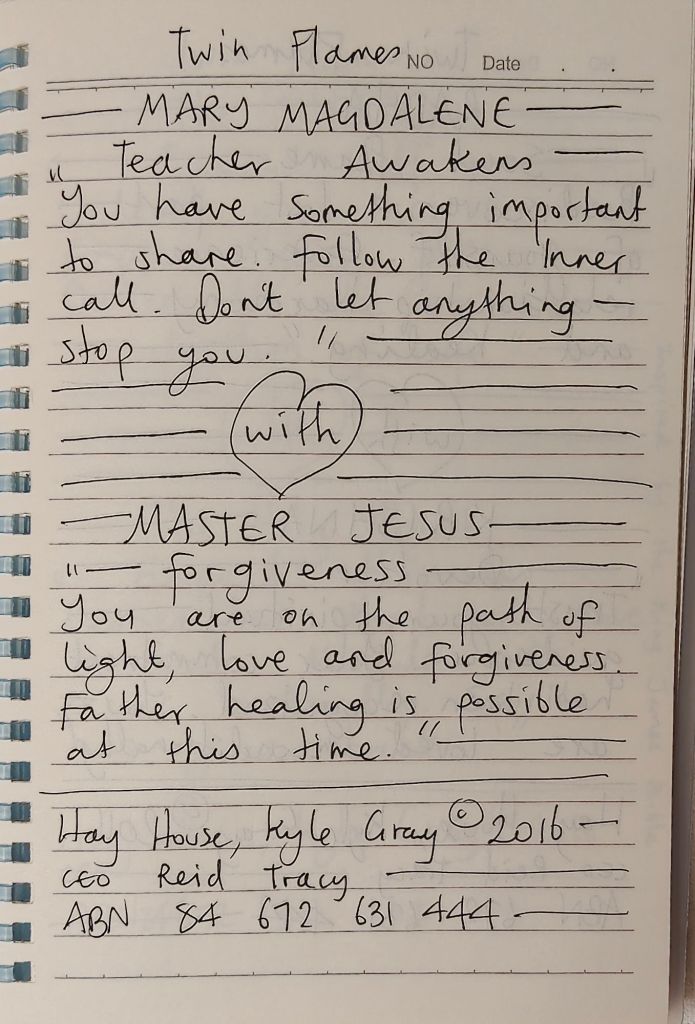 Twin Flames NO Date . .
MARY MAGDALENE
" Teacher Awakens
You have something important
to share. Follow the Inner
call. Don't let anything
stop you. "
with
MASTER JESUS
" forgiveness
You are on the path of
light, love and forgiveness.
Father healing is possible
at this time. "
Hay House, Kyle Gray © 2016
CEO Reid Tracy
ABN 84 672 631 444